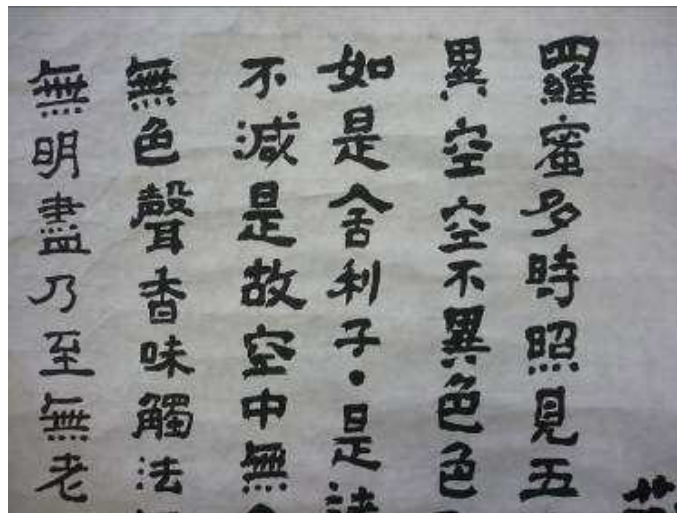 羅蜜多時照見五
異空空不異色色
如是舍利子是諸
不減是故空中無
無色聲香味觸法
無明盡乃至無老